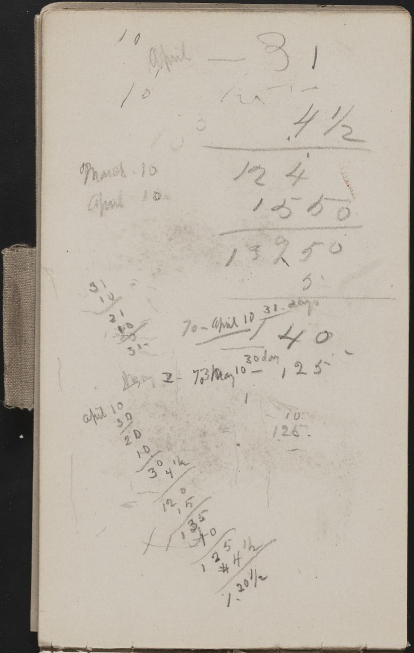 10
April — 31
10
4 1/2
March 10
124
April 10
1550
13950
5
31
10
21
10
31
70 - April 10 31 days
140
30 day
2 - To May 10 - 125
10
125.
April 10
30
20
10
30
4 1/2
120
15
135
10
125
4 1/2
1.20 1/2